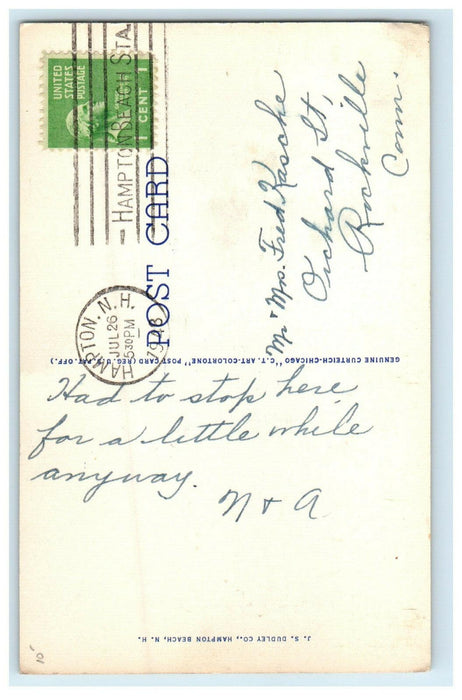 UNITED
STATES
POSTAGE
1 CENT 1
HAMPTON BEACH STA.
HAMPTON, N.H.
JUL 26
5 30 PM
POST CARD
Mr & Mrs. Fred Kasche
Orchard St,
Rockville
Conn.
GENUINE CURTEICH-CHICAGO "C.T. ART-COLORTONE" POST CARD (REG. U.S. PAT. OFF.)
Had to stop here
for a little while
anyway.
N + A
J. S. DUDLEY CO., HAMPTON BEACH, N. H.
10